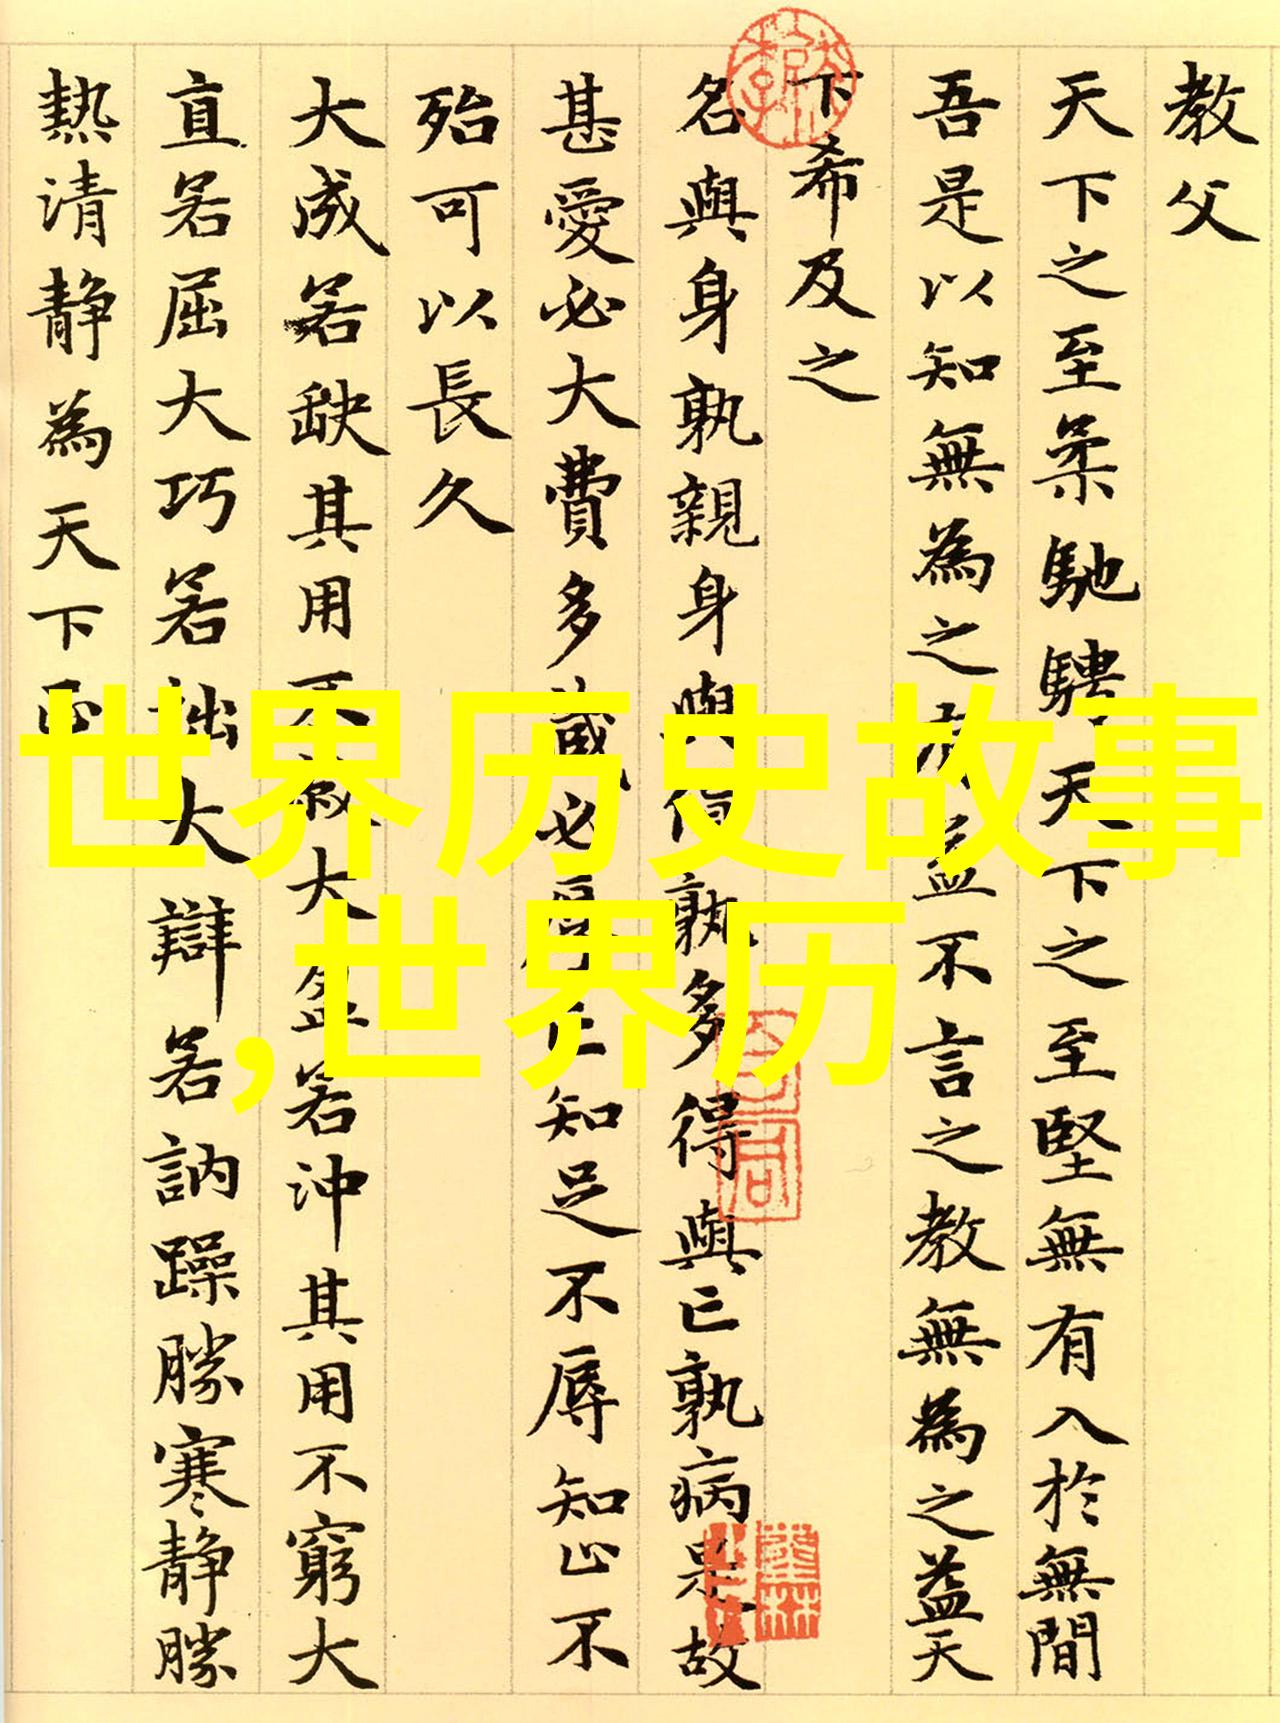 教父
天下之至柔馳騁天下之至堅無有入於無間
吾是以知無為之有益不言之教無為之益天
下希及之
名與身孰親身與貨孰多得與亡孰病是故
甚愛必大費多藏必厚亡知足不辱知止不
殆可以長久
大成若缺其用不敝大盈若沖其用不窮大
直若屈大巧若拙大辯若訥躁勝寒靜勝
熱清靜為天下正
世界历史故事
,世界历